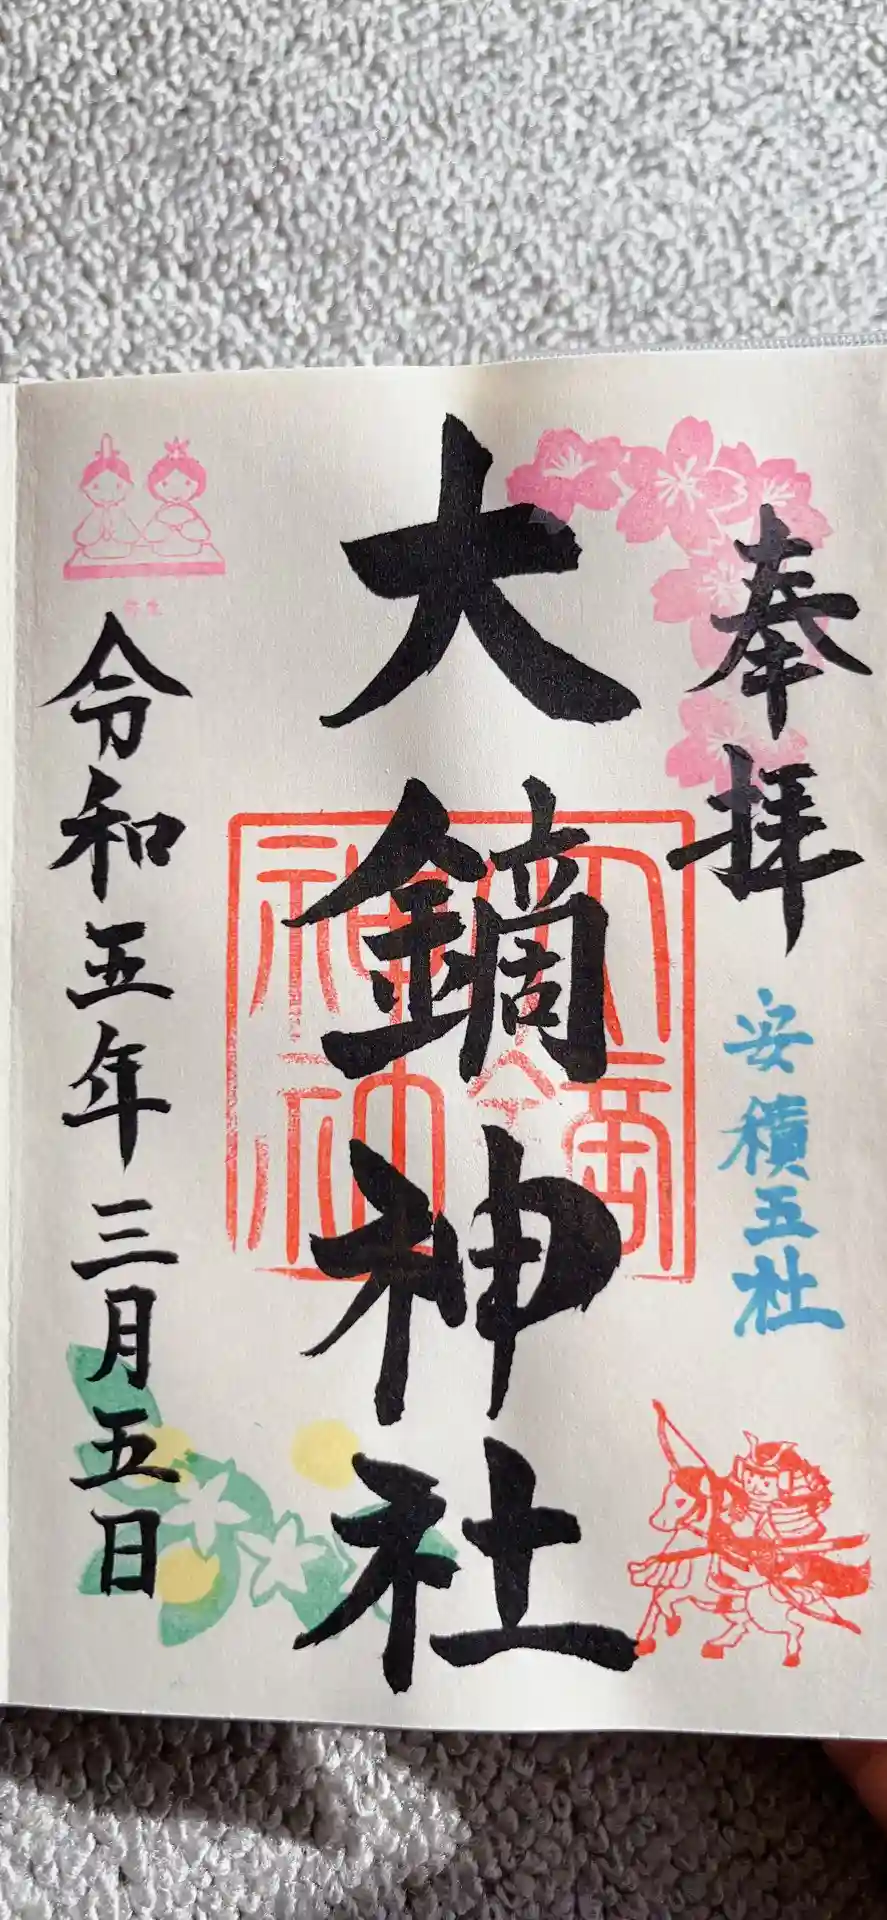 奉拝
安積五社
大鏑神社
令和五年三月五日
弥生